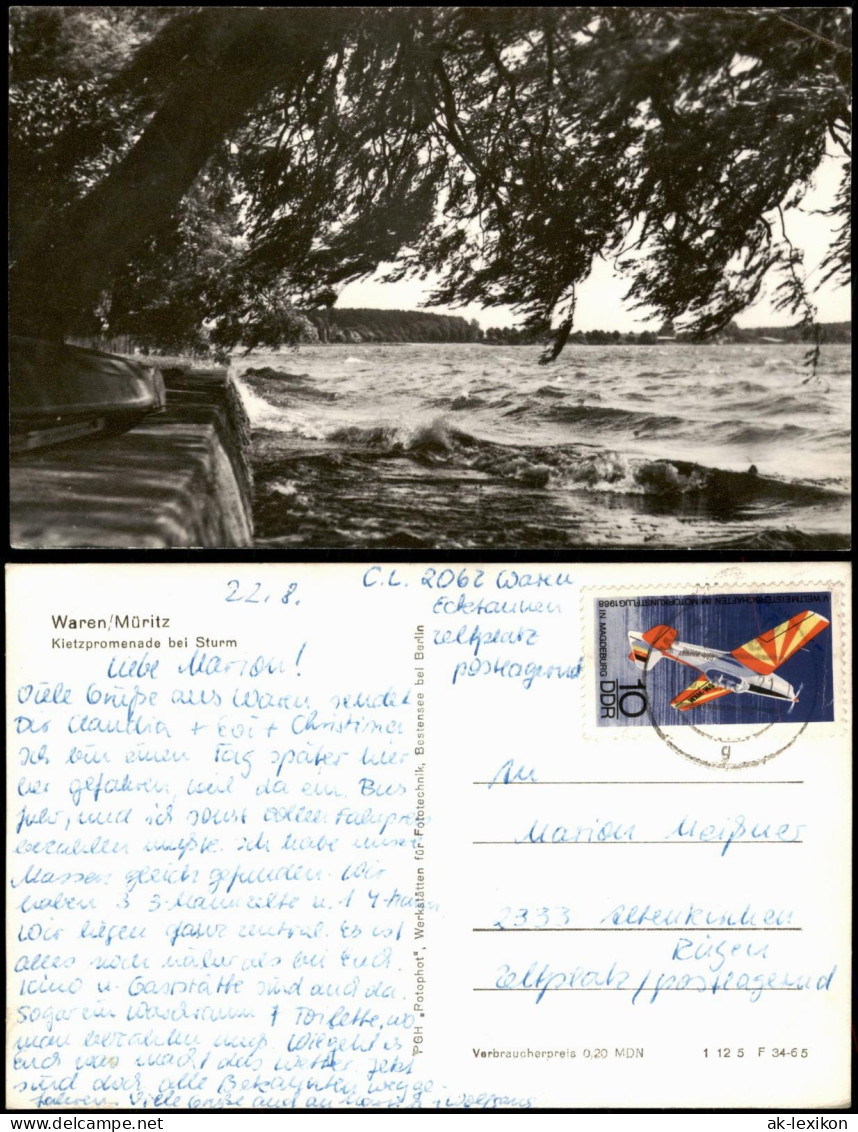 22.8.
C.L. 2062 Waren
Ecktannen
Zeltplatz
postlagernd
Waren/Müritz
Kietzpromenade bei Sturm
Liebe Marion!
Viele Grüße aus Waren sendet
Dir Claudia + + Christiner
Ich bin einen Tag später hier
her gefahren, weil da ein Bus
fuhr, und ich sonst vollen Fahrpreis
bezahlen mußte. Ich habe unsere
Massen gleich gefunden. Wir
haben 3 3-Mannzelte u. 1 4-Mann
Wir liegen ganz zentral. Es ist
alles noch näher als bei Euch.
Kino u. Gaststätte sind auch da.
Sogar ein Waschraum + Toilette, wo
man bezahlen muß. Wie geht es
Euch was macht das Wetter. Jetzt
sind doch alle Bekannten wegge-
fahren. Viele Grüße auch an + Wolfgang
PGH „Rotophot", Werkstätten für Fototechnik, Bestensee bei Berlin
V. WELTMEISTERSCHAFTEN IM MOTORKUNSTFLUG 1968
IN MAGDEBURG
DDR
10
g
An
Marion Meißner
2333 Altenkirchen
Rügen
Zeltplatz/postlagernd
Verbraucherpreis 0,20 MDN
1 12 5 F 34-65
www.delcampe.net
ak-lexikon